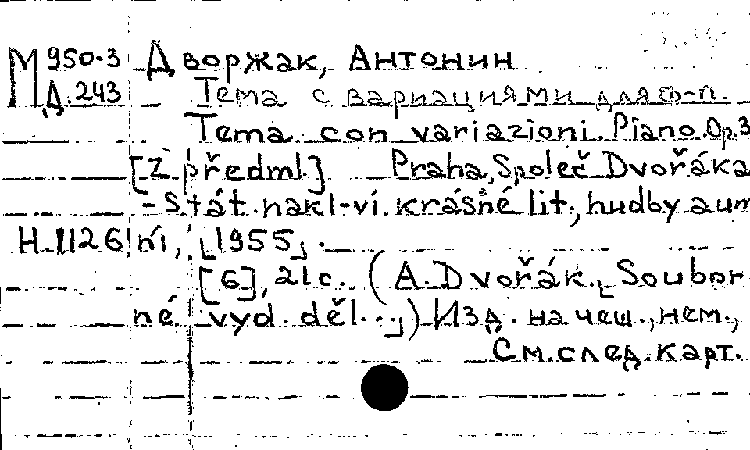 М 950-3 Дворжак, Антонин
Д.243 Тема с вариациями для ф-п.
Tema con variazioni. Piano. Op.3
[Z předml.] Praha, Společ Dvořáka
- Stát. nakl-ví. krásné lit., hudby a um
Н.1126 ní, [1955].
[6], 21c. (A. Dvořák. Soubor
né vyd. děl...) Изд. на чеш., нем.,
См. след. карт.